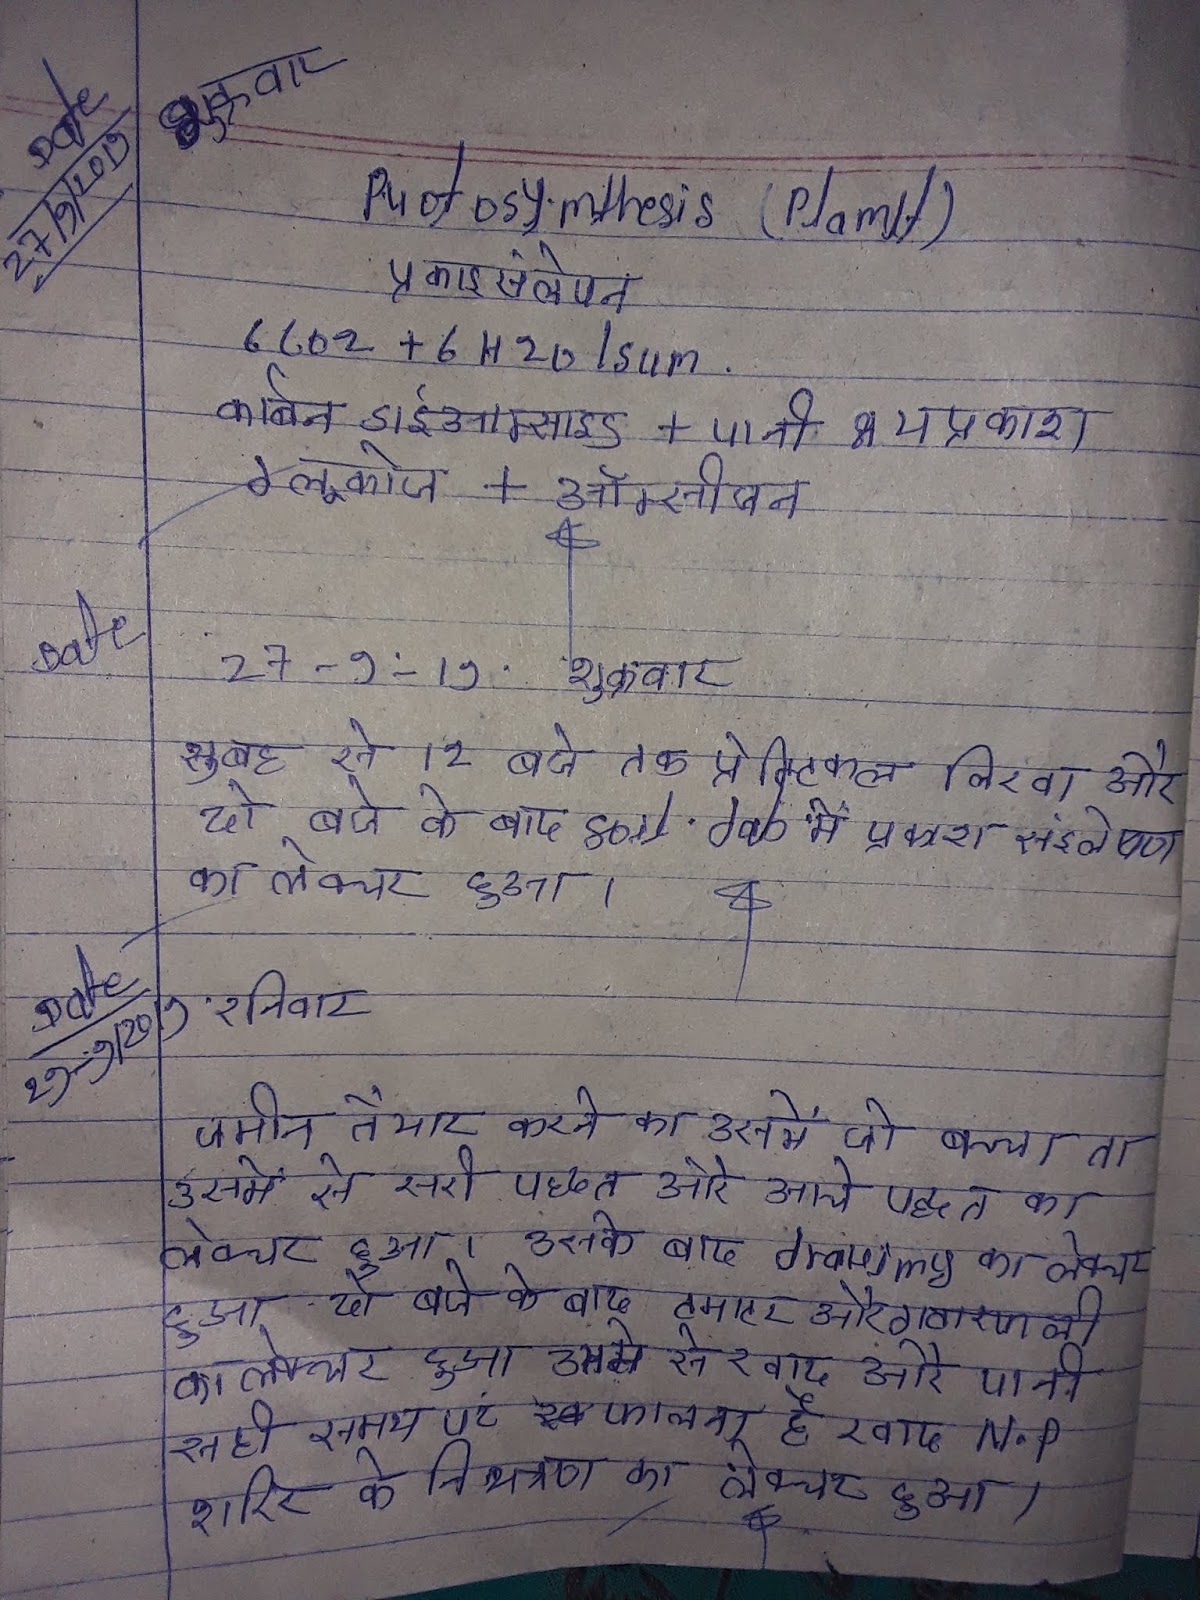 Date
27/9/2019
शुक्रवार
Puotosy.mthesis (Plamt)
प्रकाइसंलेपन
6CO2 + 6H2O /sum.
कार्बन डाईआक्साइड + पानी प्रकाश
ग्लूकोज + ऑक्सीजन
Date 27-9-19. शुक्रवार
सुबह से 12 बजे तक प्रेक्टिकल लिखा और
दो बजे के बाद soil lab में प्रकाश संइलेषण
का लेक्चर हुआ।
Date
29-9/2019 शनिवार
जमीन तैयार करने का उसमें जो बच्चा ता
उसमें से सरी पध्दत और आचे पद्दत का
लेक्चर हुआ। उसके बाद drawimg का लेक्चर
हुआ दो बजे के बाद टमाटर और
का लेक्चर हुआ उसमे से खाद और पानी
सही समय पर है खाद N.P
शरिर के नियंत्रण का लेक्चर हुआ।